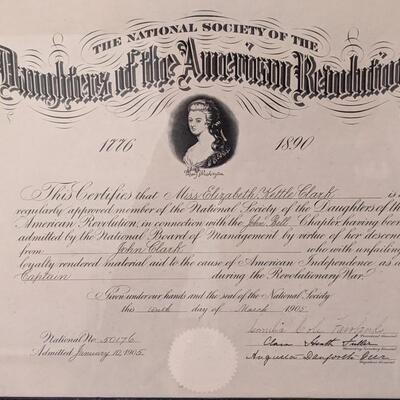 THE NATIONAL SOCIETY OF THE
Daughters of the American Revolution
1776 1890
Mary Washington
This Certifies that Miss Elizabeth Kettle Clark is a
regularly approved member of the National Society of the Daughters of the
American Revolution, in connection with the John Bell Chapter having been
admitted by the National Board of Management by virtue of her descent
from John Clark who with unfailing
loyalty rendered material aid to the cause of American Independence as a
Captain during the Revolutionary War.
Given under our hands and the seal of the National Society
this tenth day of March 1905
Cornelia Cole Fairbanks
National No. 50176
Clara Heath Fuller
Admitted January 10, 1905.
Augusta Danforth Geer